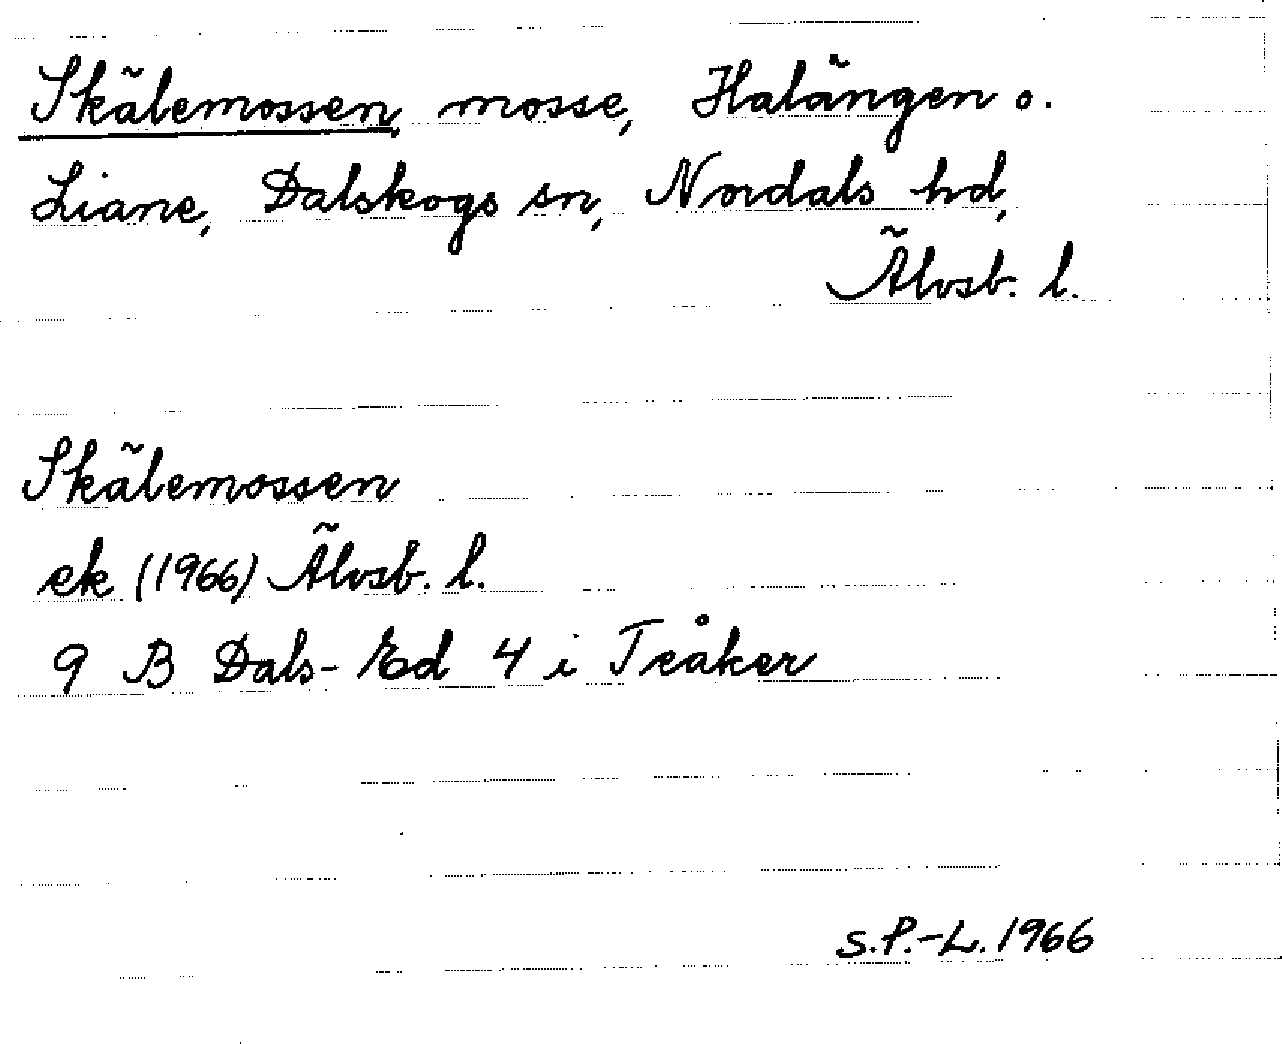 Skälemossen, mosse, Halängen o.
Liane, Dalskogs sn, Nordals hd,
Älvsb. l.
Skälemossen
ek (1966) Älvsb. l.
9 B Dals-Ed 4 i Teåker
S.P.-L. 1966